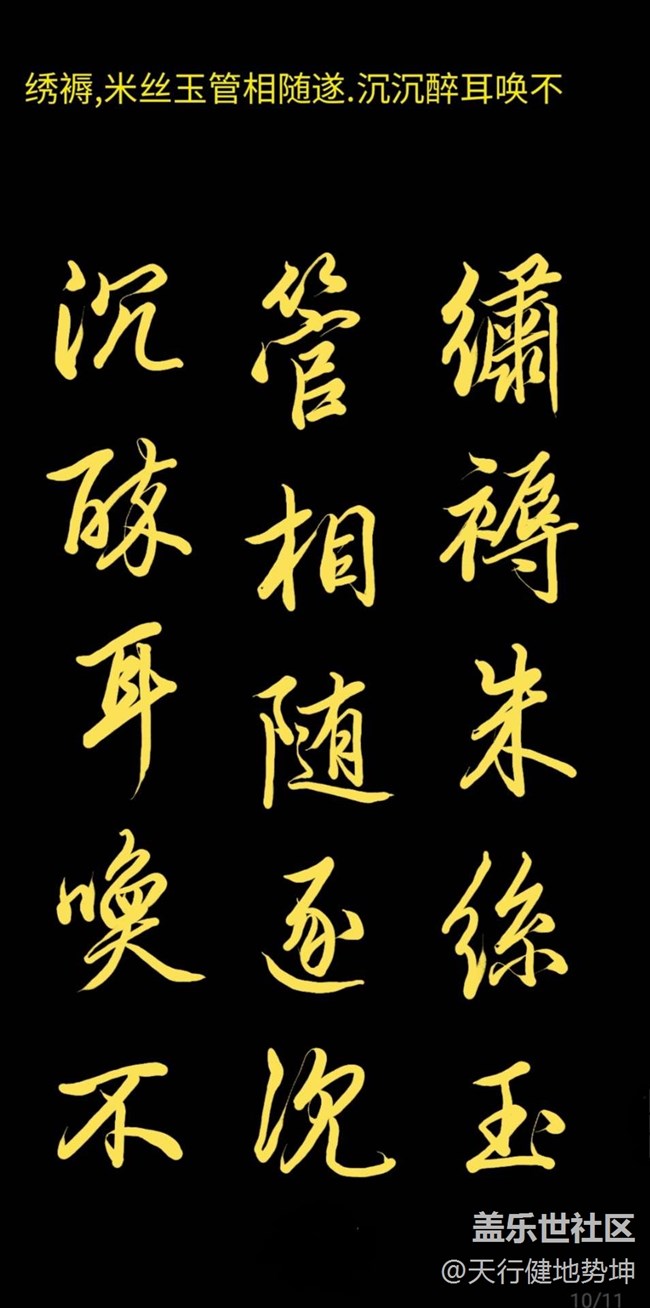 绣褥,米丝玉管相随遂.沉沉醉耳唤不
繡褥朱絲玉
管相随逐沉
沉醉耳喚不
盖乐世社区
@天行健地势坤
10/11